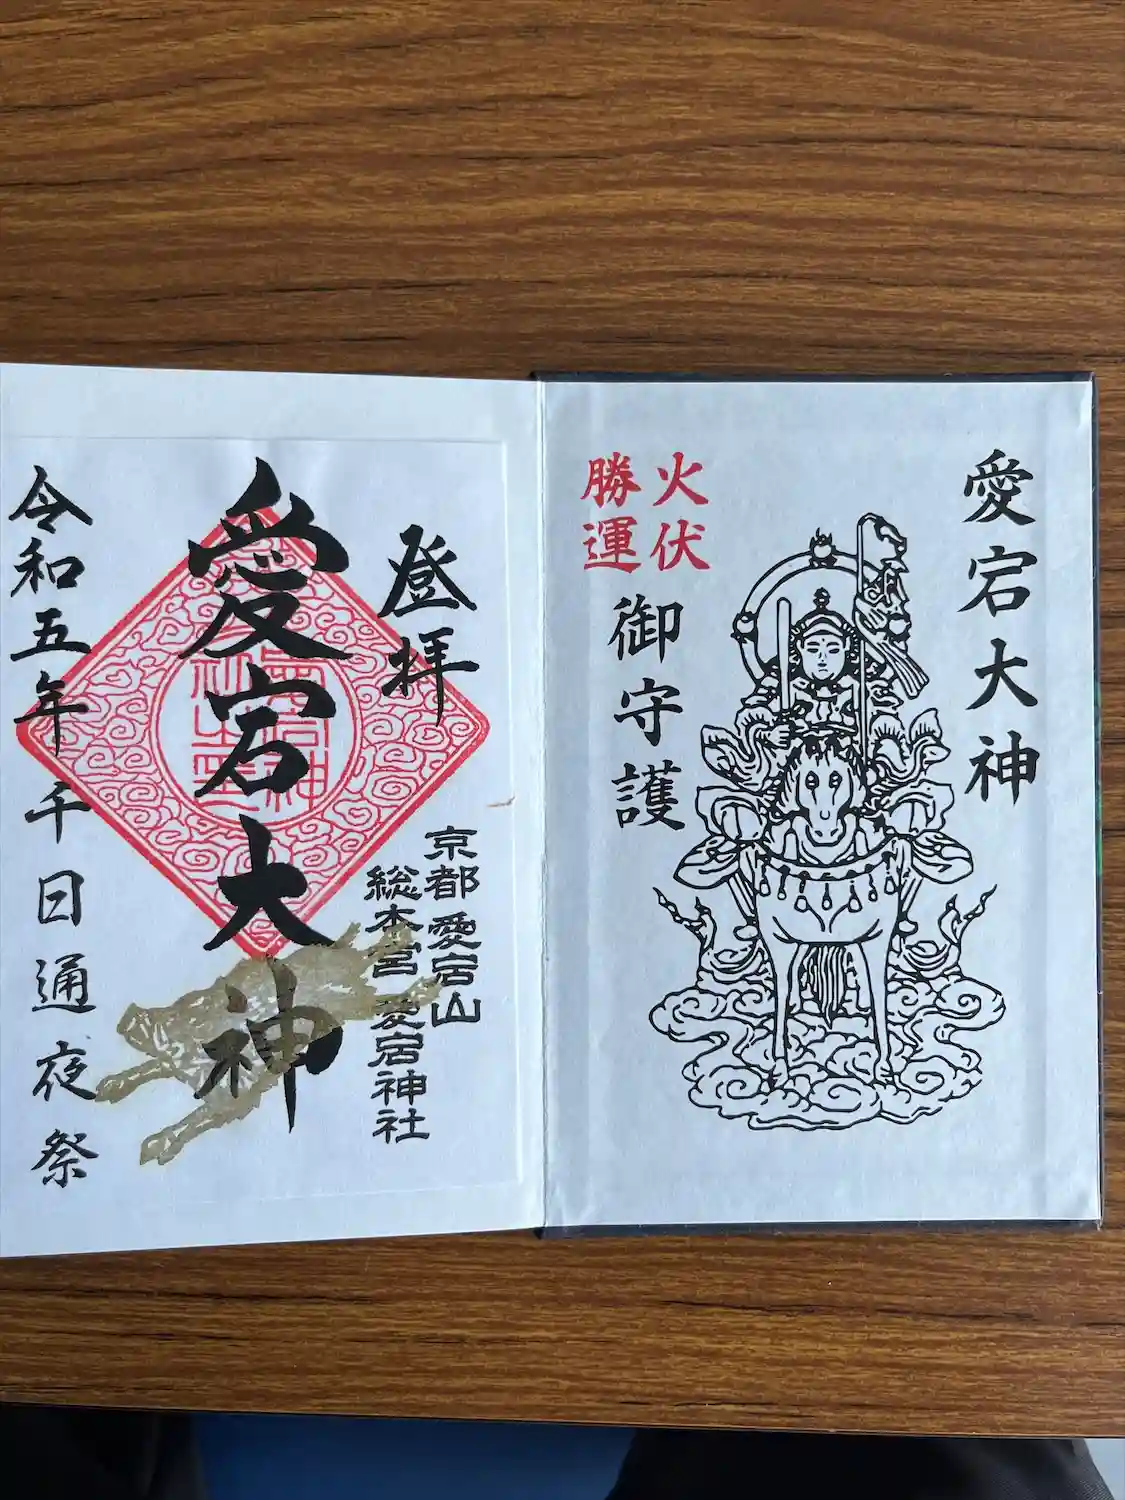 愛宕大神
火伏
勝運
御守護
登拝
愛宕大神
京都愛宕山
総本宮 愛宕神社
令和五年 千日通夜祭